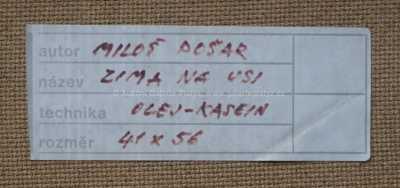 autor MILOŠ POŠAR
název ZIMA NA VSI
technika OLEJ-KASEIN
rozměr 41 x 56